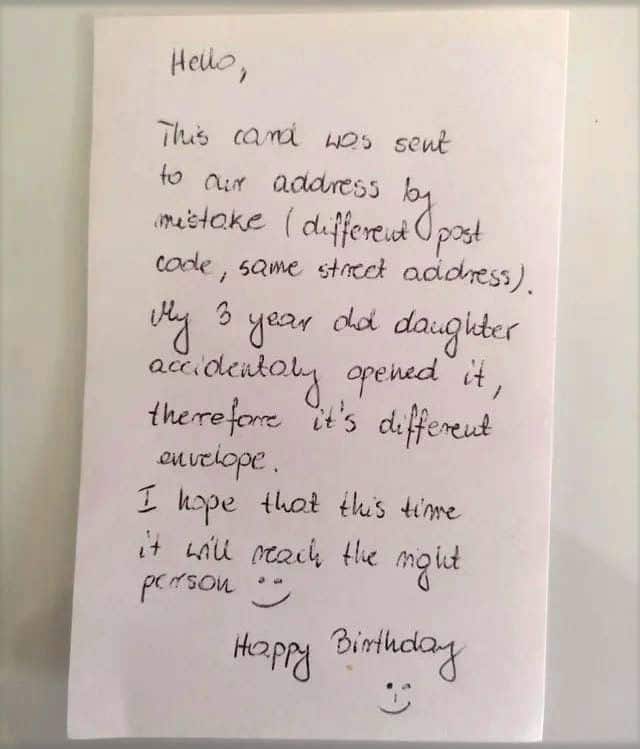 Hello,
This card was sent
to our address by
mistake (different post
code, same street address).
My 3 year old daughter
accidentaly opened it,
therefore it's different
envelope.
I hope that this time
it will reach the right
person
Happy Birthday